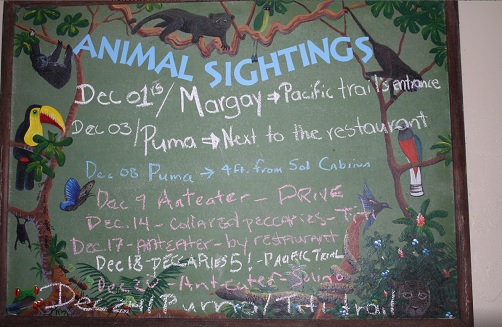 ANIMAL SIGHTINGS
Dec 01st/ Margay → Pacific trail's entrance
Dec 03/ Puma → Next to the restaurant
Dec 08 Puma → 4ft. from Sol Cabina
Dec 9 Anteater - DRIVE
Dec. 14 - Collared peccaries - Titi
Dec. 17 - ANTEATER - by restaurant
Dec 18 - PECCARIES 5! - PACIFIC TRAIL
Dec 20 - Anteater -
Dec 21/ Puma/ Titi trail